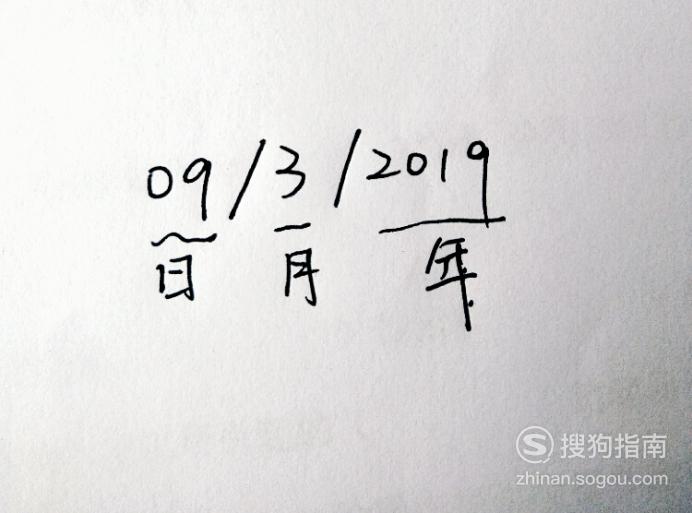 09/3/2019
日 月 年
搜狗指南
zhinan.sogou.com